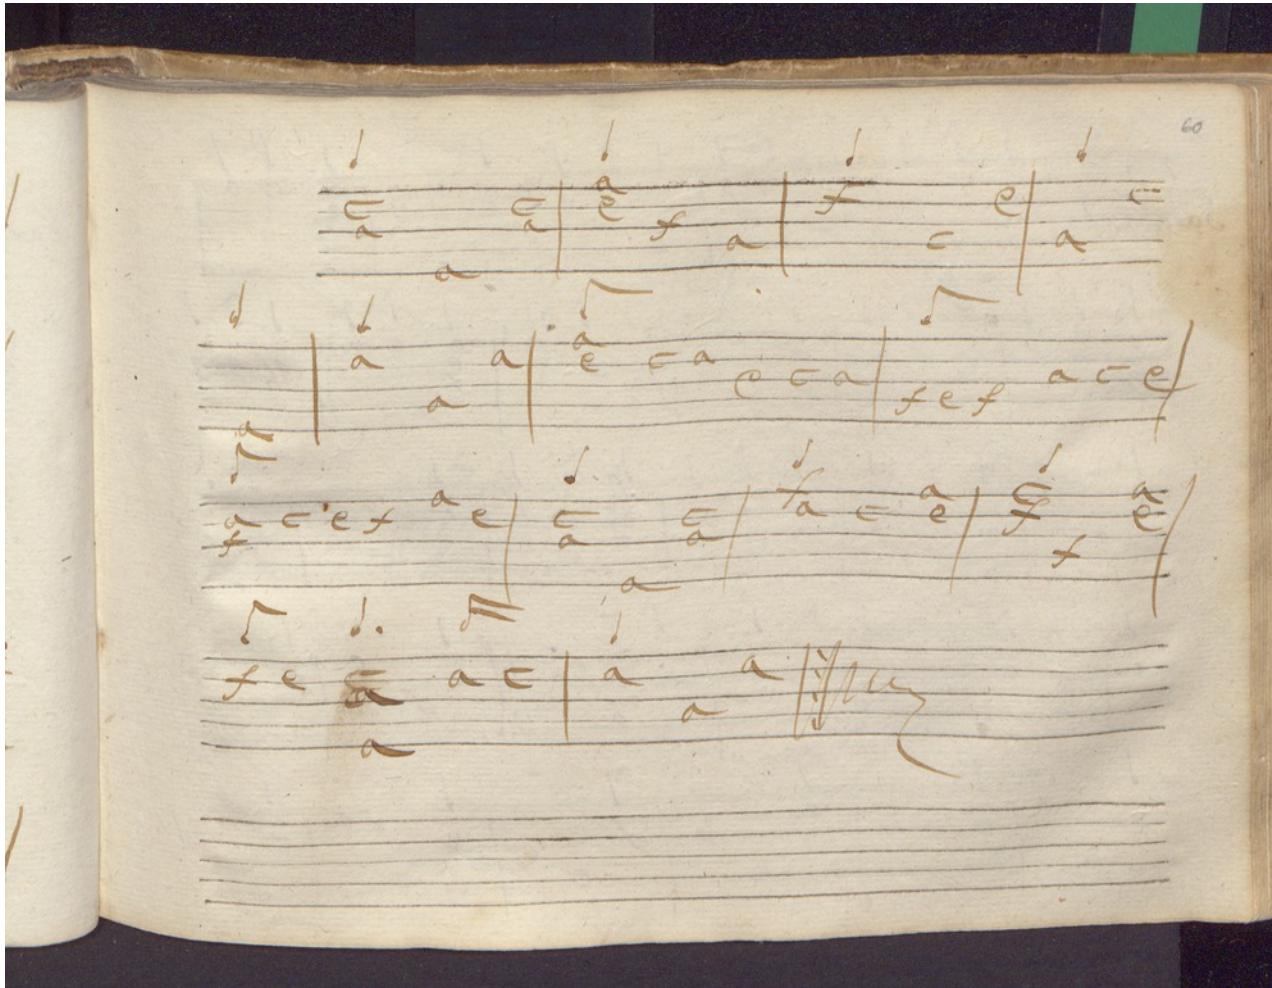 60
c a a c a a e f a f c e a c
a a a a a e c a e c a f e f a c e
a f c e f a e c a a c a f a c a e c f f a e
f e c a a a c a a a